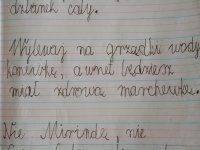 dzbanek cały.
Wylewaj na grządkę wody
konewkę, a wnet będziesz
miał zdrową marchewkę.
Nie Mirindę, nie